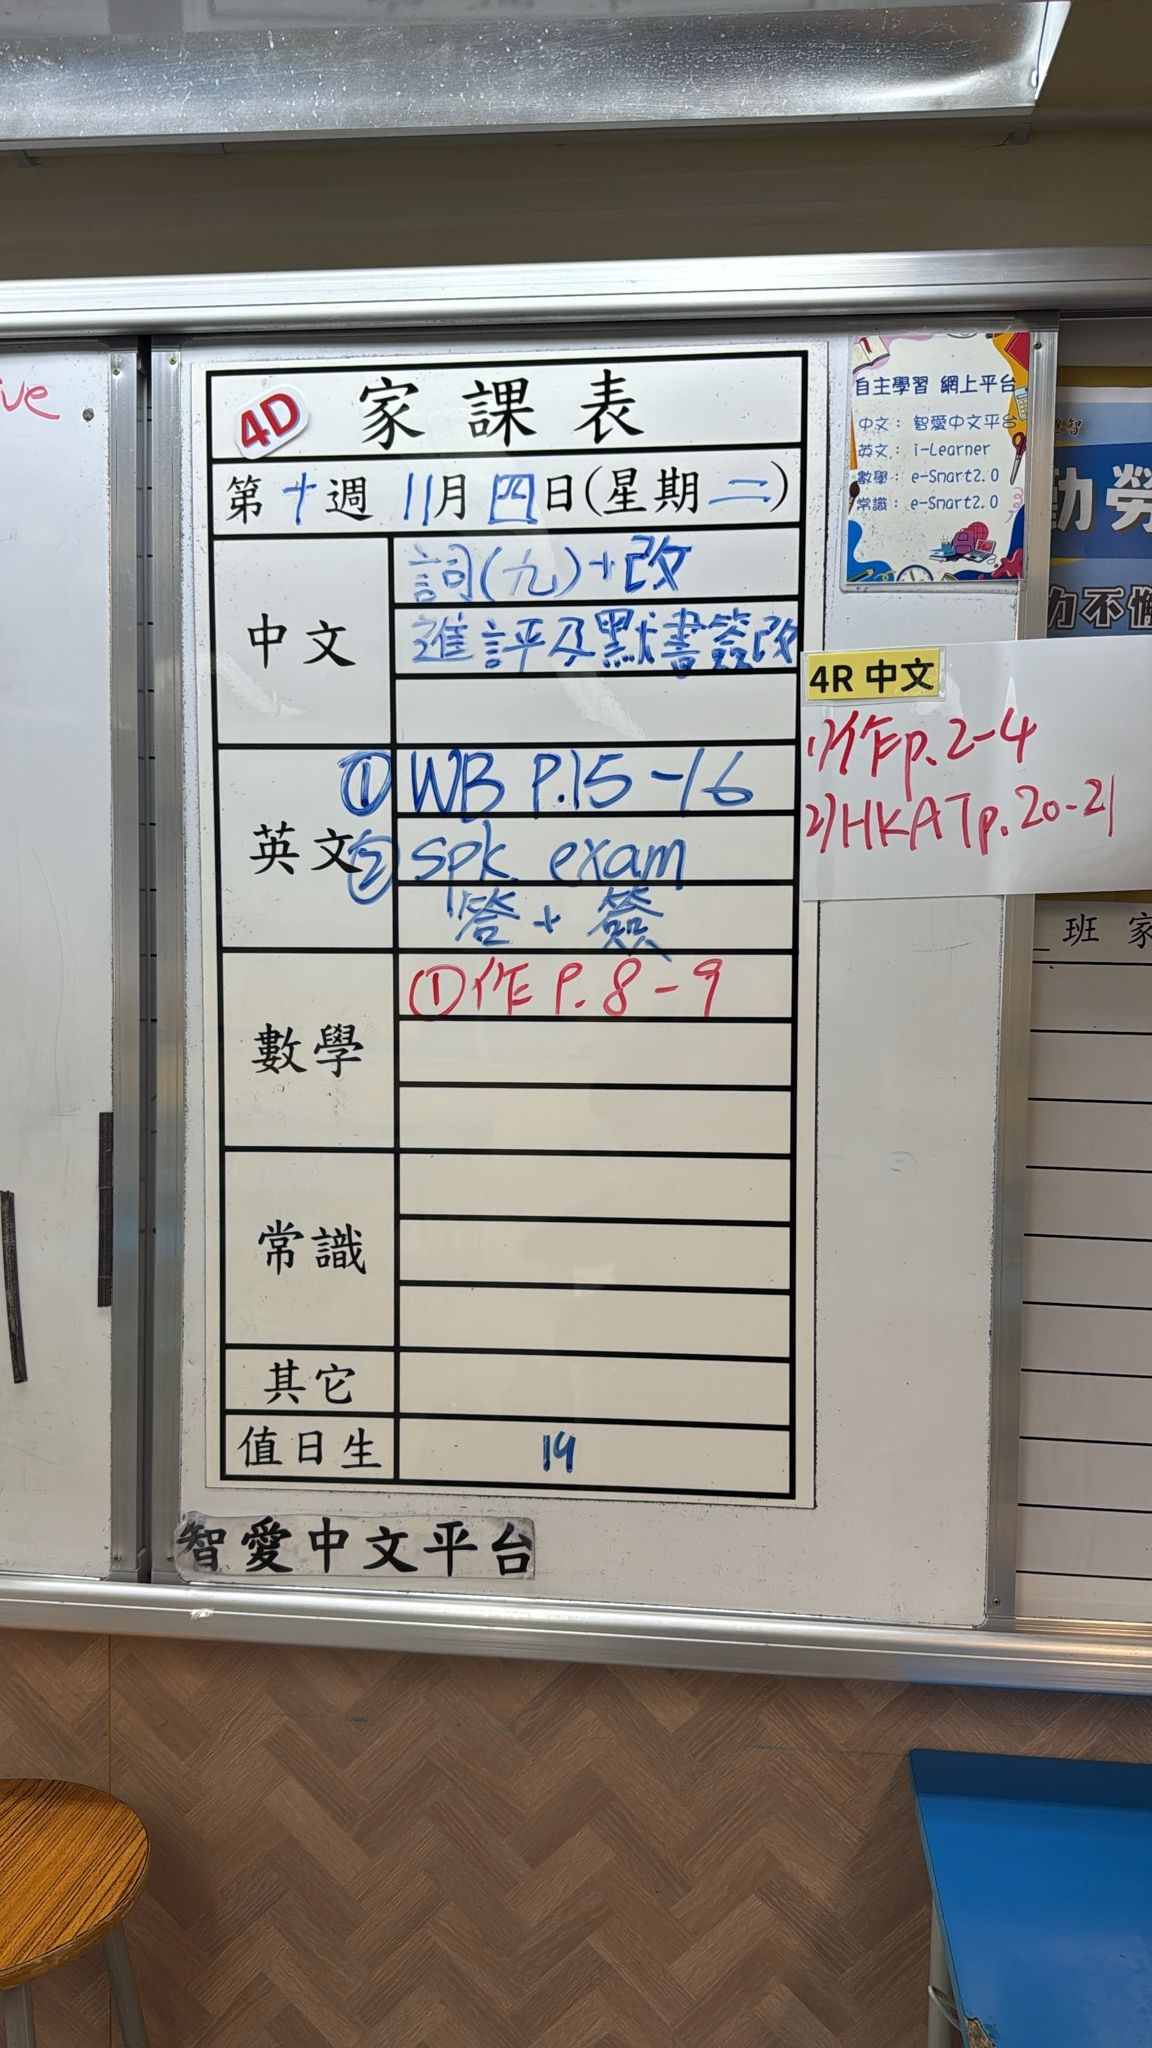 ive
4D 家課表
第十週 11月四日(星期二)
中文
詞(九)+改
進評及默書簽改
英文
① WB P.15-16
② spk. exam
答 + 簽
數學
①作 P.8-9
常識
其它
值日生
19
智愛中文平台
自主學習 網上平台
中文：智愛中文平台
英文：i-Learner
數學：e-Smart2.0
常識：e-Smart2.0
4R 中文
1)作p.2-4
2)HKAT p.20-21
勤勞
力不懈
班 家